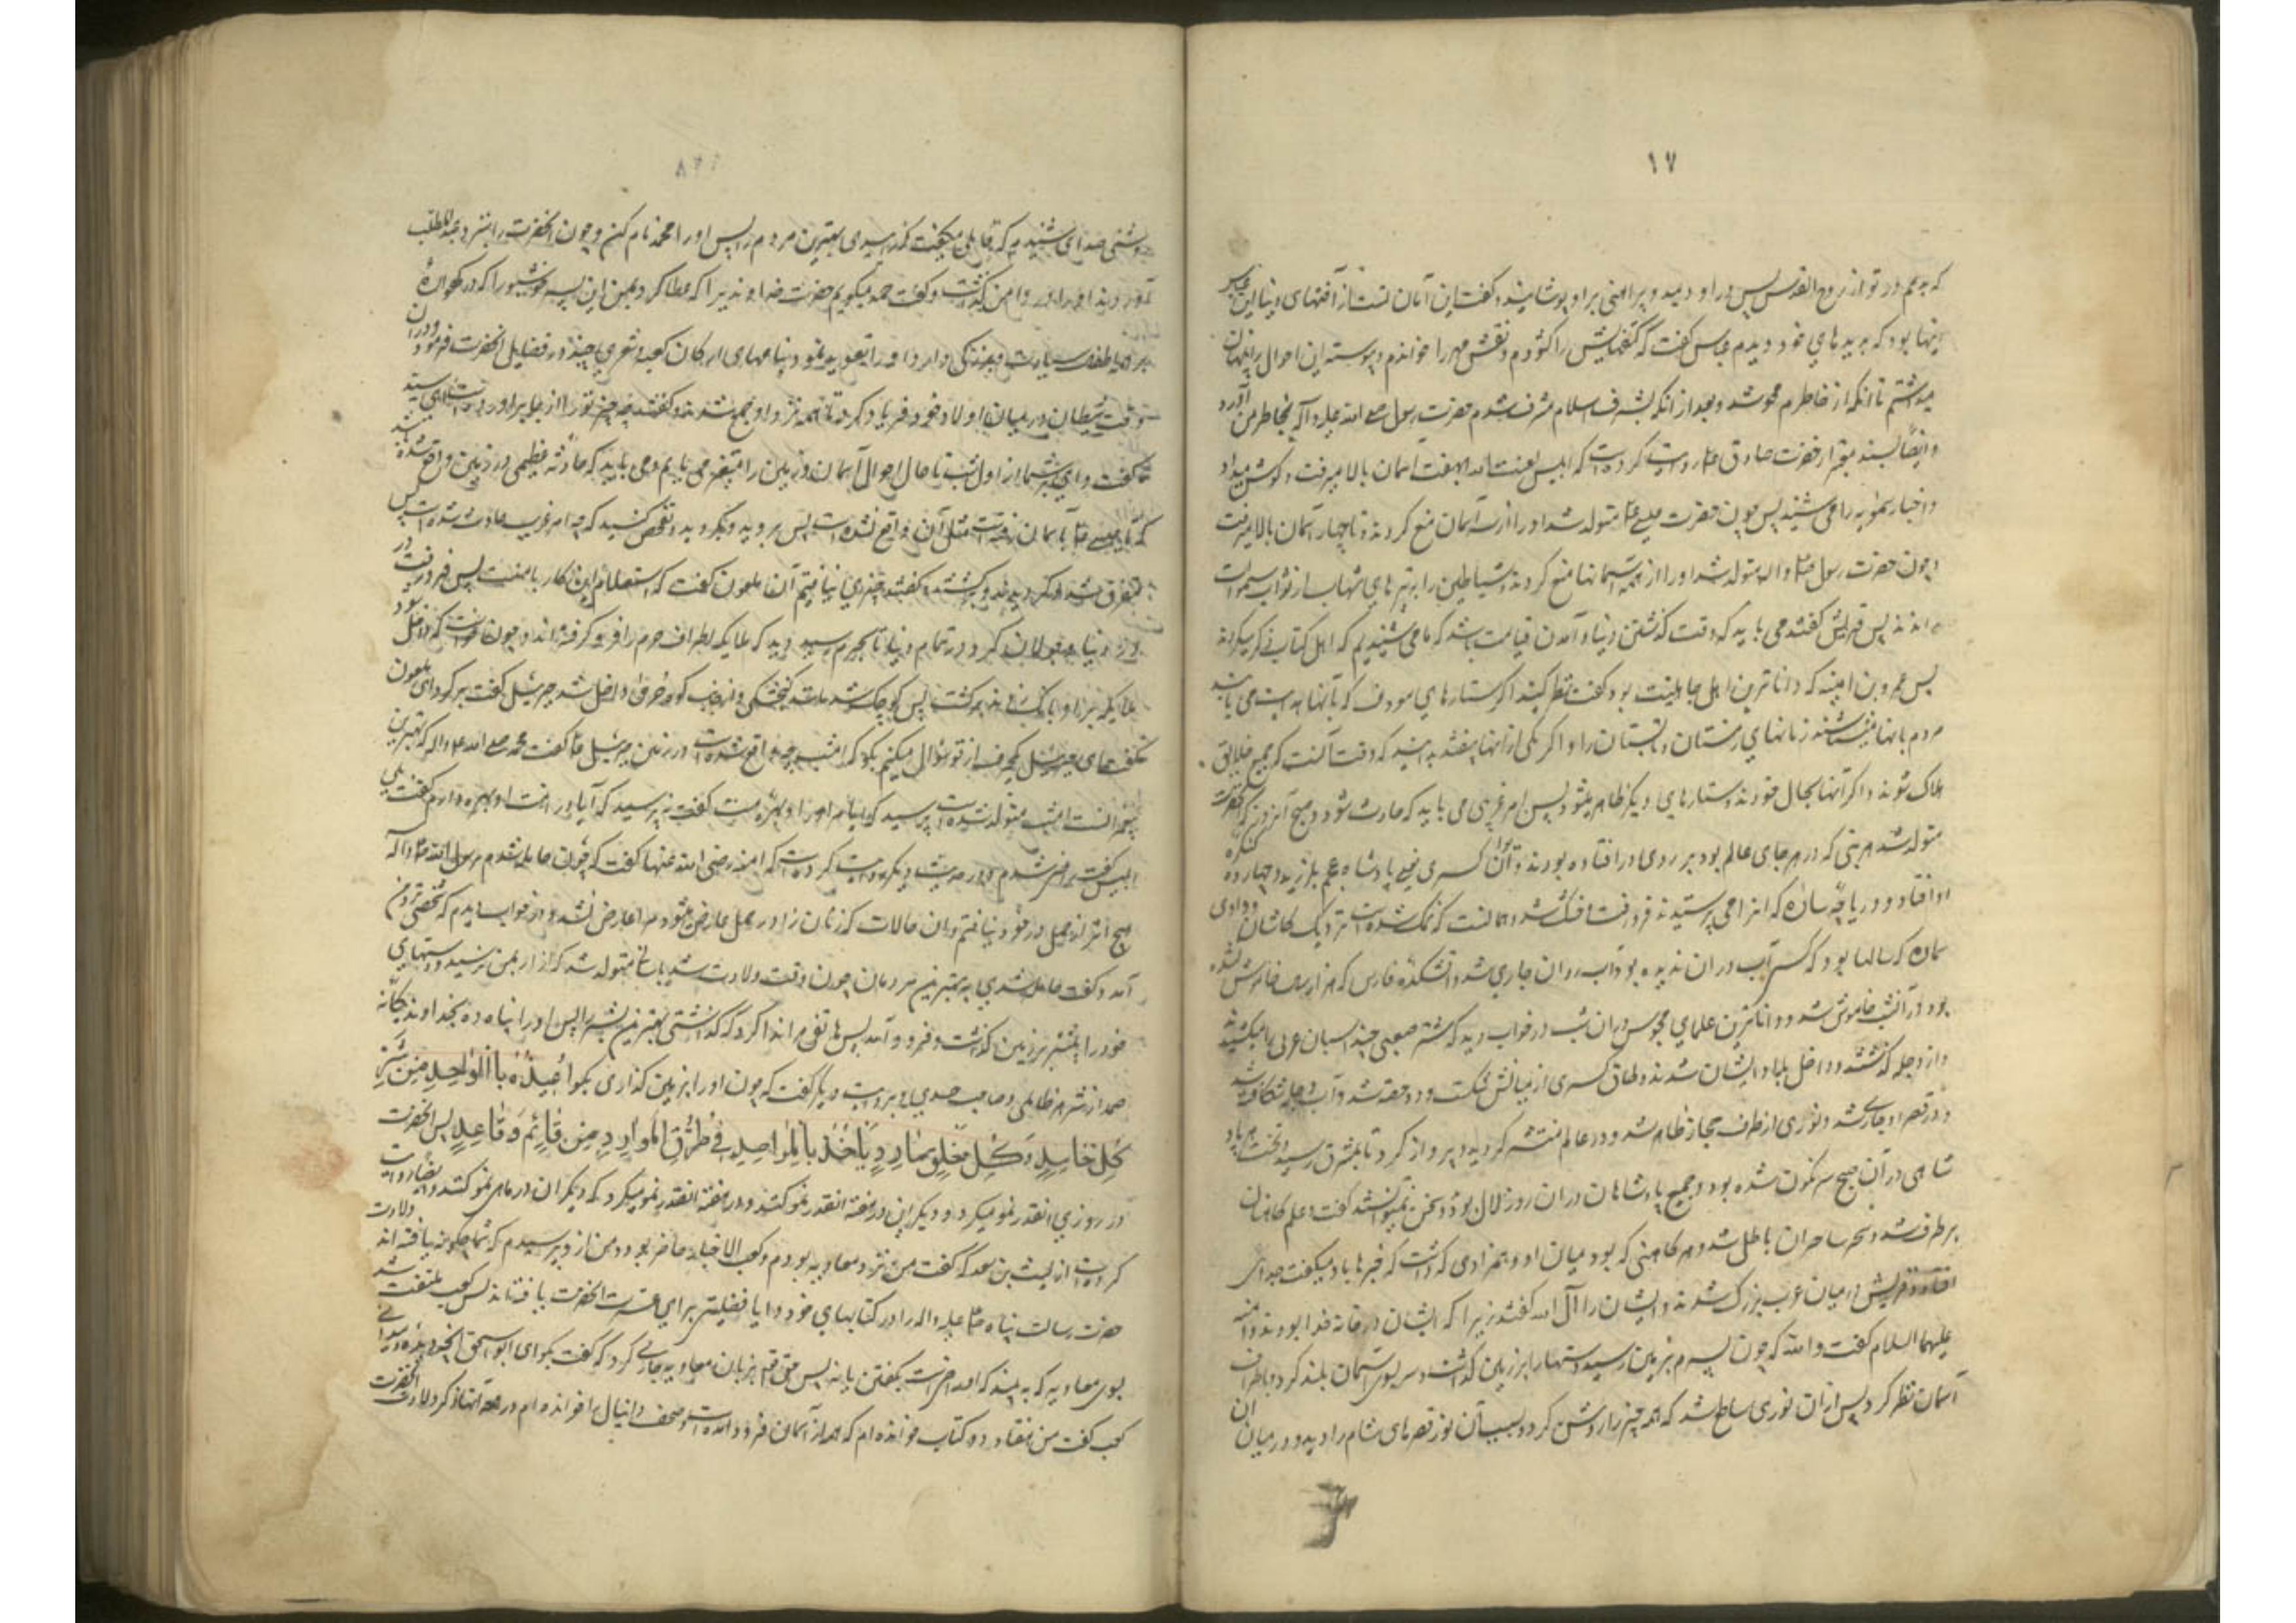 ١٧
که بدمم در تو از روح القدس پس در او دمید و پیراهنی بر او پوشانید و گفت این امان تست از آفتهای دنیا این عباس
اینها بود که بدیده‌های خود دیدم عباس گفت که کتفهایش را گشودم و نقش مهر را خواندم و پیوسته این احوال را پنهان
میداشتم تا آنکه از خاطرم محو شد و بعد از آنکه بشرف اسلام مشرف شدم حضرت رسول صلی الله علیه و آله بخاطر من آورد
و ایضا بسند معتبر از حضرت صادق ع روایت کرده است که ابلیس لعنت الله بهفت آسمان بالا میرفت و گوش میداد
و اخبار سمویه را می شنید پس چون حضرت عیسی ع متولد شد او را از سه آسمان منع کردند و تا چهار آسمان بالا میرفت
و چون حضرت رسول ص و اله متولد شد او را از همه آسمانها منع کردند و شیاطین را بتیرهای شهاب از ابواب سموات
راندند پس قریش گفتند می باید که وقت گذشتن دنیا و آمدن قیامت باشد که ما می شنیدیم که اهل کتاب ذکر میکردند
پس عمرو بن امیه که داناترین اهل جاهلیت بود گفت نظر کنید اگر ستارهای معروف که بآنها هدایت می یابند
مردم بانها میشناسند زمانهای زمستان و تابستان را و اگر یکی از آنها بیفتد بدانید که وقت آنست که جمیع خلایق
هلاک شوند و اگر آنها بحال خودند و ستارهای دیگر ظاهر میشود پس امر غریبی می باید که حادث شود و صبح آن روز که آنحضرت
متولد شد هر بتی که در هر جای عالم بود بر روی در افتاده بودند و ایوان کسری یعنی پادشاه عجم بلرزید و چهارده کنگره
او افتاد و دریاچه ساوه که انرا می پرستیدند فرو رفت و خشک شد و همانست که نمک شده است نزدیک کاشان و وادی
سماوه که سالها بود که کسی آب در ان ندیده بود آب روان جاری شد و آتشکده فارس که هزار سال خاموش نشده
بود در آن شب خاموش شد و داناترین علمای مجوس در ان شب در خواب دید که شتر صعبی چند اسبان عربی را میکشید
و از دجله گذشتند و داخل بلاد ایشان شدند و طاق کسری از میانش شکست و دو حصه شد و آب دجله شکافته شد
و در قصر او جاری شد و نوری از طرف حجاز ظاهر شد و در عالم منتشر گردید و پرواز کرد تا بمشرق رسید و تخت هر پاد
شاهی در آن صبح سرنگون شده بود و جمیع پادشاهان در ان روز لال بودند و سخن نمیتوانستند گفت و علم کاهنان
برطرف شد و سحر ساحران باطل شد و هر کاهنی که بود میان او و همزادی که داشت که خبرها باو میگفت جدائی
افتاد و قریش در میان عرب بزرگ شدند و ایشان را آل الله گفتند زیرا که ایشان در خانه خدا بودند و آمنه
علیهما السلام گفت و الله که چون پسرم بر زمین رسید دستها را بر زمین گذاشت و سر بسوی آسمان بلند کرد و باطراف
آسمان نظر کرد پس از ان نوری ساطع شد که همه چیز را روشن کرد و بسبب آن نور قصرهای شام را دید و در میان ان
روشنی صدای شنیدم که قایلی میگفت که زاییدی بهترین مردم را پس او را محمد نام کن و چون آنحضرت را بنزد عبدالمطلب
آوردند او را در دامن گذاشت و گفت حمد میگویم خداوندیرا که عطا کرد بمن این پسر خوشبو را که در گهواره
بر همه اطفال سیادت و بزرگی دارد او را تعویذ نمود بنامهای ارکان کعبه و شعری چند در فضایل آنحضرت فرمود و در آن
وقت شیطان در میان اولاد خود فریاد کرد تا همه نزد او جمع شدند و گفتند چه چیز تو را از جا برآورده است ای سید
گفت وای بر شما از اول شب تا حال احوال آسمان و زمین را متغیر می یابم و می باید که حادثه عظیمی در زمین واقع شده باشد
که تا عیسی بآسمان رفته است مثل آن واقع نشده است پس بروید و بگردید و تفحص کنید که چه امر غریب حادث شده است پس
متفرق شدند و گردیدند و برگشتند و گفتند چیزی نیافتیم آن ملعون گفت که استعلام این کار با منست پس فرو رفت در
دنیا و جولان کرد در تمام دنیا تا بحرم رسید دید که ملایکه اطراف حرم را فرو گرفته‌اند و چون خواست که داخل شود
ملایکه بر او بانگ زدند برگشت پس کوچک شد مانند گنجشکی و از جانب کوه حرا داخل شد جبرئیل گفت برگرد ای ملعون
گفت ای جبرئیل یک حرف از تو سؤال میکنم بگو که امشب چه واقع شده است در زمین جبرئیل گفت محمد صلی الله علیه و اله که بهترین
پیغمبرانست امشب متولد شده است پرسید که آیا مرا در او بهره هست گفت نه پرسید که آیا در امت او بهره دارم گفت بلی
ابلیس گفت راضی شدم و در حدیث دیگر روایت کرده است که امنه رضی الله عنها گفت که چون حامله شدم برسول الله ص و آله
هیچ اثر از حمل در خود نیافتم و ان حالات که زنان را در حمل عارض میشود مرا عارض نشد و در خواب دیدم که شخصی نزد من
آمد و گفت حامله شدی به بهترین مردمان چون وقت ولادت شد باسانی متولد شد که آزار بمن نرسید و دستهای
خود را پیشتر بر زمین گذاشت و فرود آمد پس هاتفی مرا ندا کرد که گذاشتی بهترین بشر را پس او را پناه ده بخداوند یگانه
صمد از شر هر ظالمی و صاحب حسدی و بروایت دیگر گفت که چون او را بر زمین گذاری بگو اُعِیذُهُ بِالْوَاحِدِ مِنْ شَرِّ
کُلِّ حَاسِدٍ وَ کُلِّ خَلْقٍ مَارِدٍ یَأْخُذُ بِالْمَرَاصِدِ فِی طُرُقِ الْمَوَارِدِ مِنْ قَائِمٍ وَ قَاعِدٍ پس آنحضرت
در روزی انقدر نمو میکرد و دیگران در هفته انقدر نمو کنند و در هفته انقدر نمو میکرد که دیگران در ماهی نمو کنند و ایضا روایت
کرده است از لیث بن سعد که گفت من نزد معاویه بودم و کعب الاخبار حاضر بود و من از او پرسیدم که شما چگونه یافته‌اند ولادت
حضرت رسالت پناه ص علیه و اله را در کتابهای خود و آیا فضیلتی برای عترت آنحضرت یافته‌اند پس کعب ملتفت شد
بسوی معاویه که به بیند که امر راضی است بگفتن یا نه پس حق تعالی بر زبان معاویه جاری کرد که گفت بگو ای ابو اسحق آنچه دیده و میدانی
کعب گفت من هفتاد و دو کتاب خوانده‌ام که همه از آسمان فرود آمده است و صحف دانیال را خوانده‌ام و در همه آنها ذکر ولادت آنحضرت